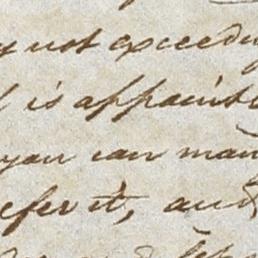 not exceed
is appoint
you can man
efer it, and